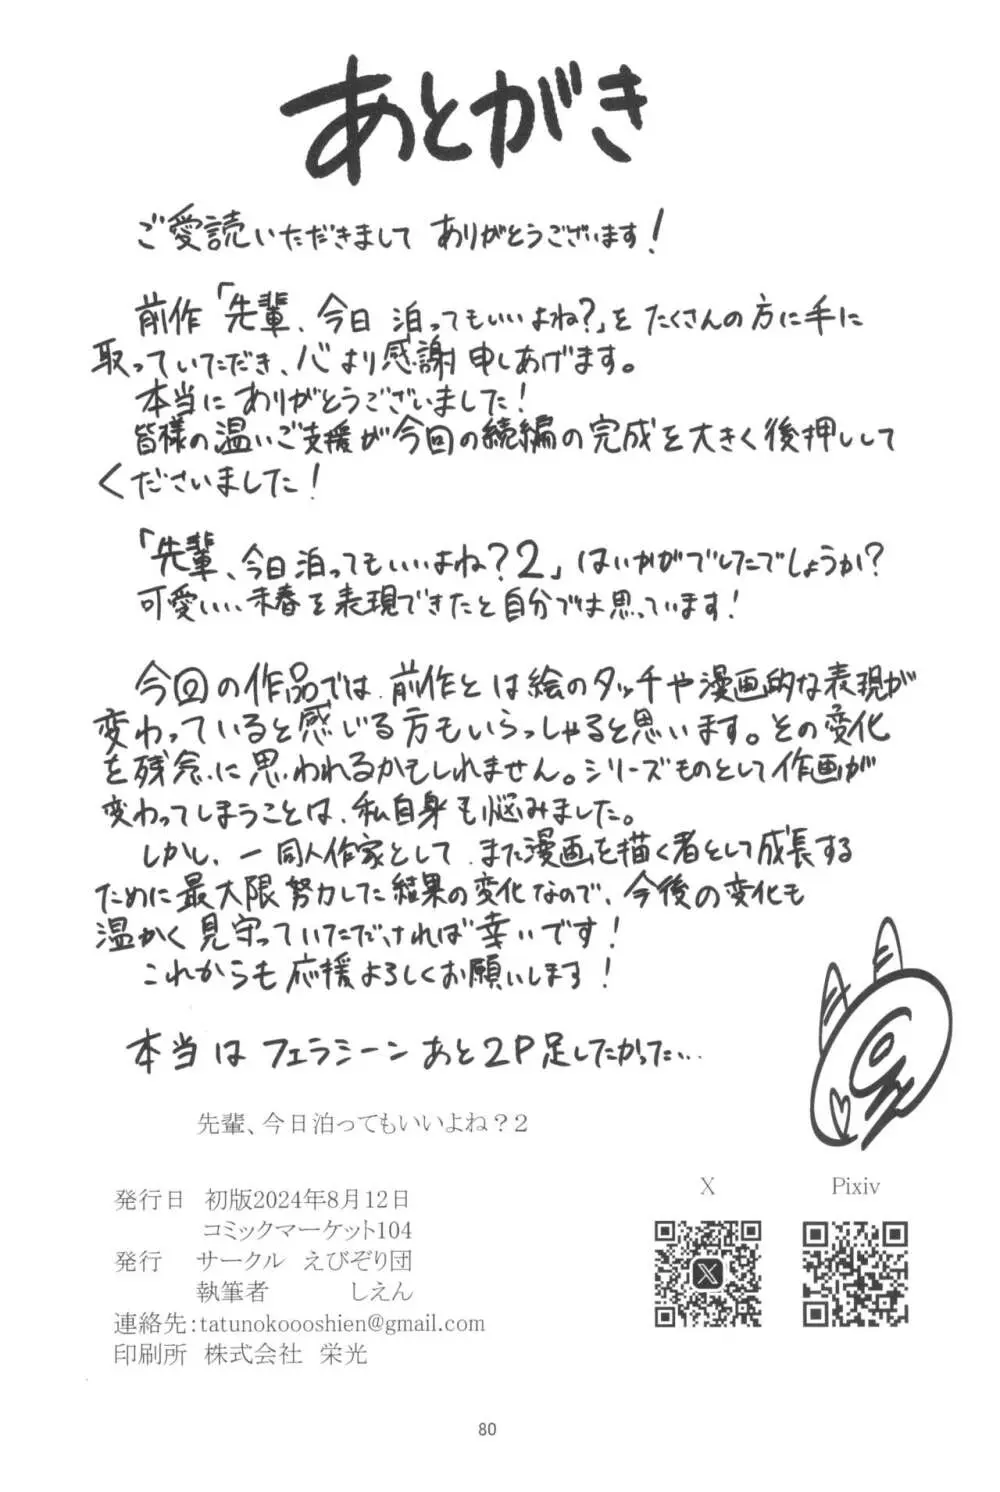 あとがき
ご愛読いただきまして ありがとうございます!
前作「先輩、今日 泊ってもいいよね?」を たくさんの方に手に
取っていただき、心より感謝申しあげます。
本当に ありがとうございました!
皆様の温いご支援が今回の続編の完成を大きく後押しして
くださいました!
「先輩、今日泊ってもいいよね?2」はいかがでしたでしょうか?
可愛いい未春を表現できたと自分では思っています!
今回の作品では、前作とは絵のタッチや漫画的な表現が
変わっていると感じる方もいらっしゃると思います。その変化
を残念に思われるかもしれません。シリーズものとして作画が
変わってしまうことは、私自身も悩みました。
しかし、一同人作家として、また漫画を描く者として成長する
ために最大限努力した結果の変化なので、今後の変化も
温かく見守っていただければ幸いです!
これからも応援よろしくお願いします!
本当は フェラシーン あと2P足したかった…
先輩、今日泊ってもいいよね?2
発行日 初版2024年8月12日
コミックマーケット104
発行 サークル えびぞり団
執筆者 しえん
連絡先:tatunokoooshien@gmail.com
印刷所 株式会社 栄光
X
Pixiv
80